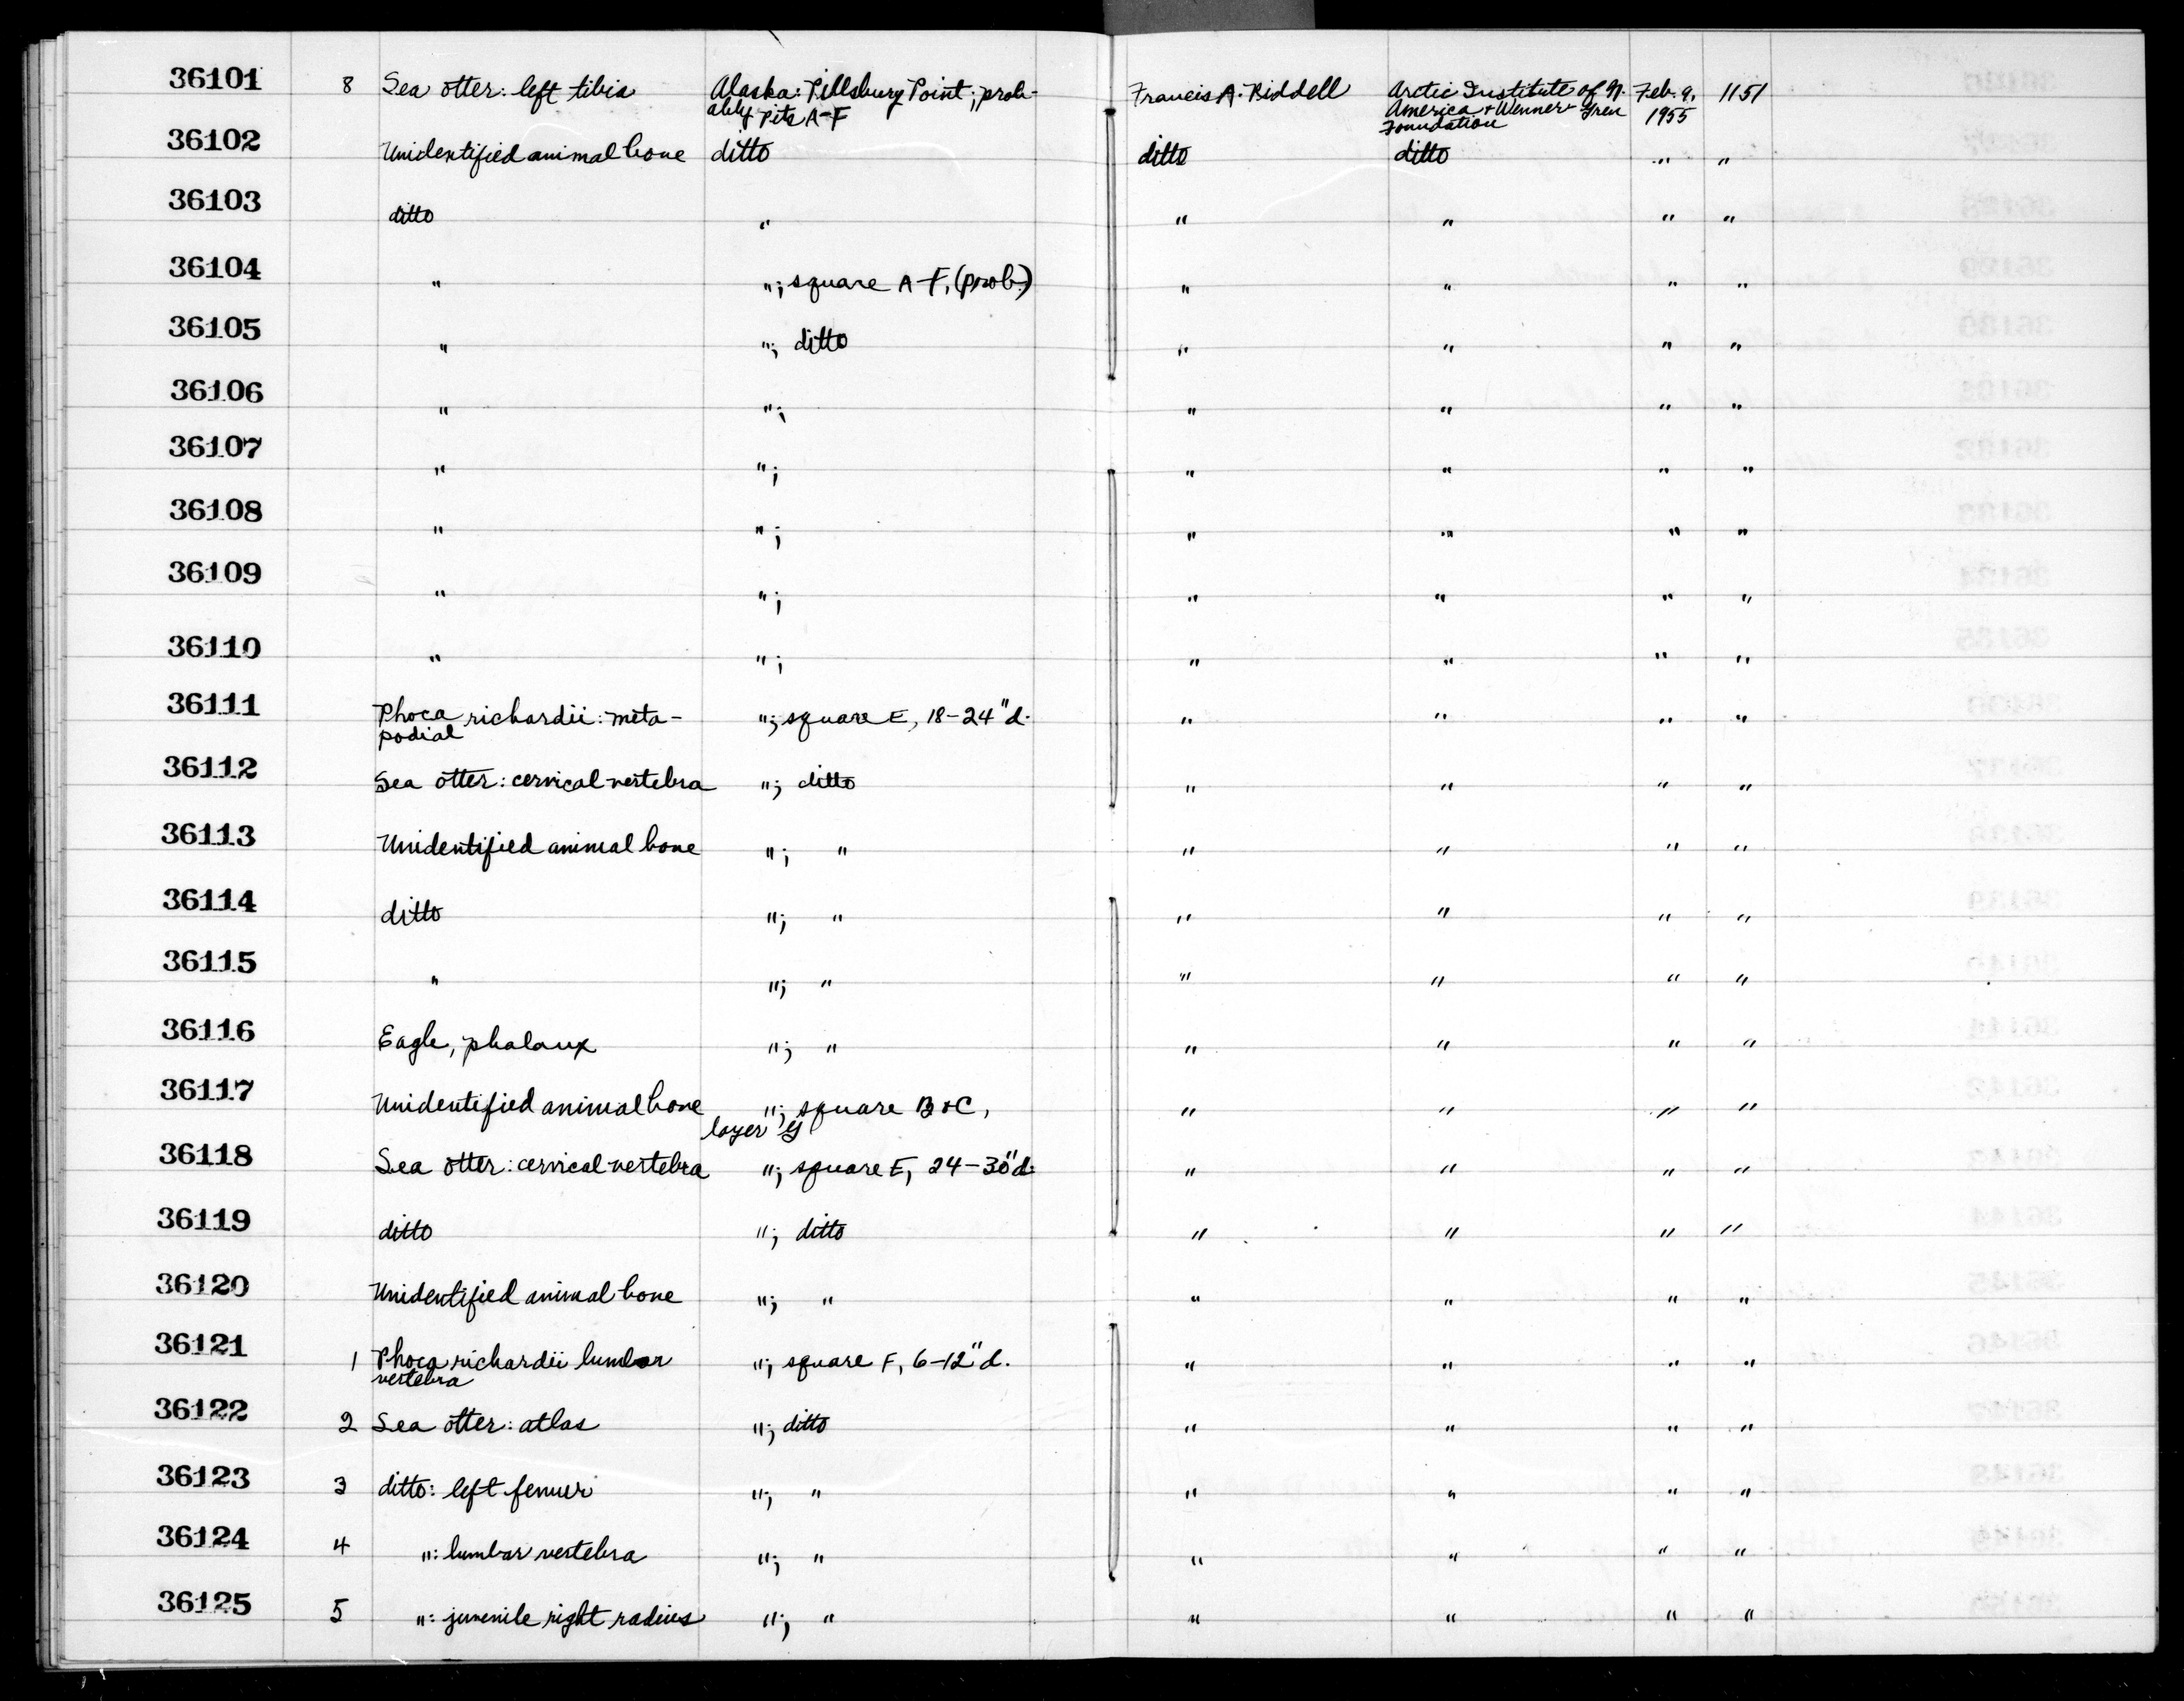 36101 8 Sea otter: left tibia Alaska: Pillsbury Point; prob- Francis A. Riddell Arctic Institute of N. Feb. 9, 1151
ably Pits A-F America + Wenner-Gren 1955
Foundation
36102 Unidentified animal bone ditto ditto ditto " "
36103 ditto " " " " "
36104 " "; square A-F, (prob.) " " " "
36105 " "; ditto " " " "
36106 " "; " " " "
36107 " "; " " " "
36108 " "; " " " "
36109 " "; " " " "
36110 " "; " " " "
36111 Phoca richardii: meta- "; square E, 18-24" d. " " " "
podial
36112 Sea otter: cervical vertebra "; ditto " " " "
36113 Unidentified animal bone "; " " " " "
36114 ditto "; " " " " "
36115 " "; " " " " "
36116 Eagle, phalanx "; " " " " "
36117 Unidentified animal bone "; square B+C, " " " "
layer
36118 Sea otter: cervical vertebra "; square E, 24-30" d. " " " "
36119 ditto "; ditto " " " "
36120 Unidentified animal bone "; " " " " "
36121 1 Phoca richardii lumbar "; square F, 6-12" d. " " " "
vertebra
36122 2 Sea otter: atlas "; ditto " " " "
36123 3 ditto: left femur "; " " " " "
36124 4 ": lumbar vertebra "; " " " " "
36125 5 ": juvenile right radius "; " " " " "